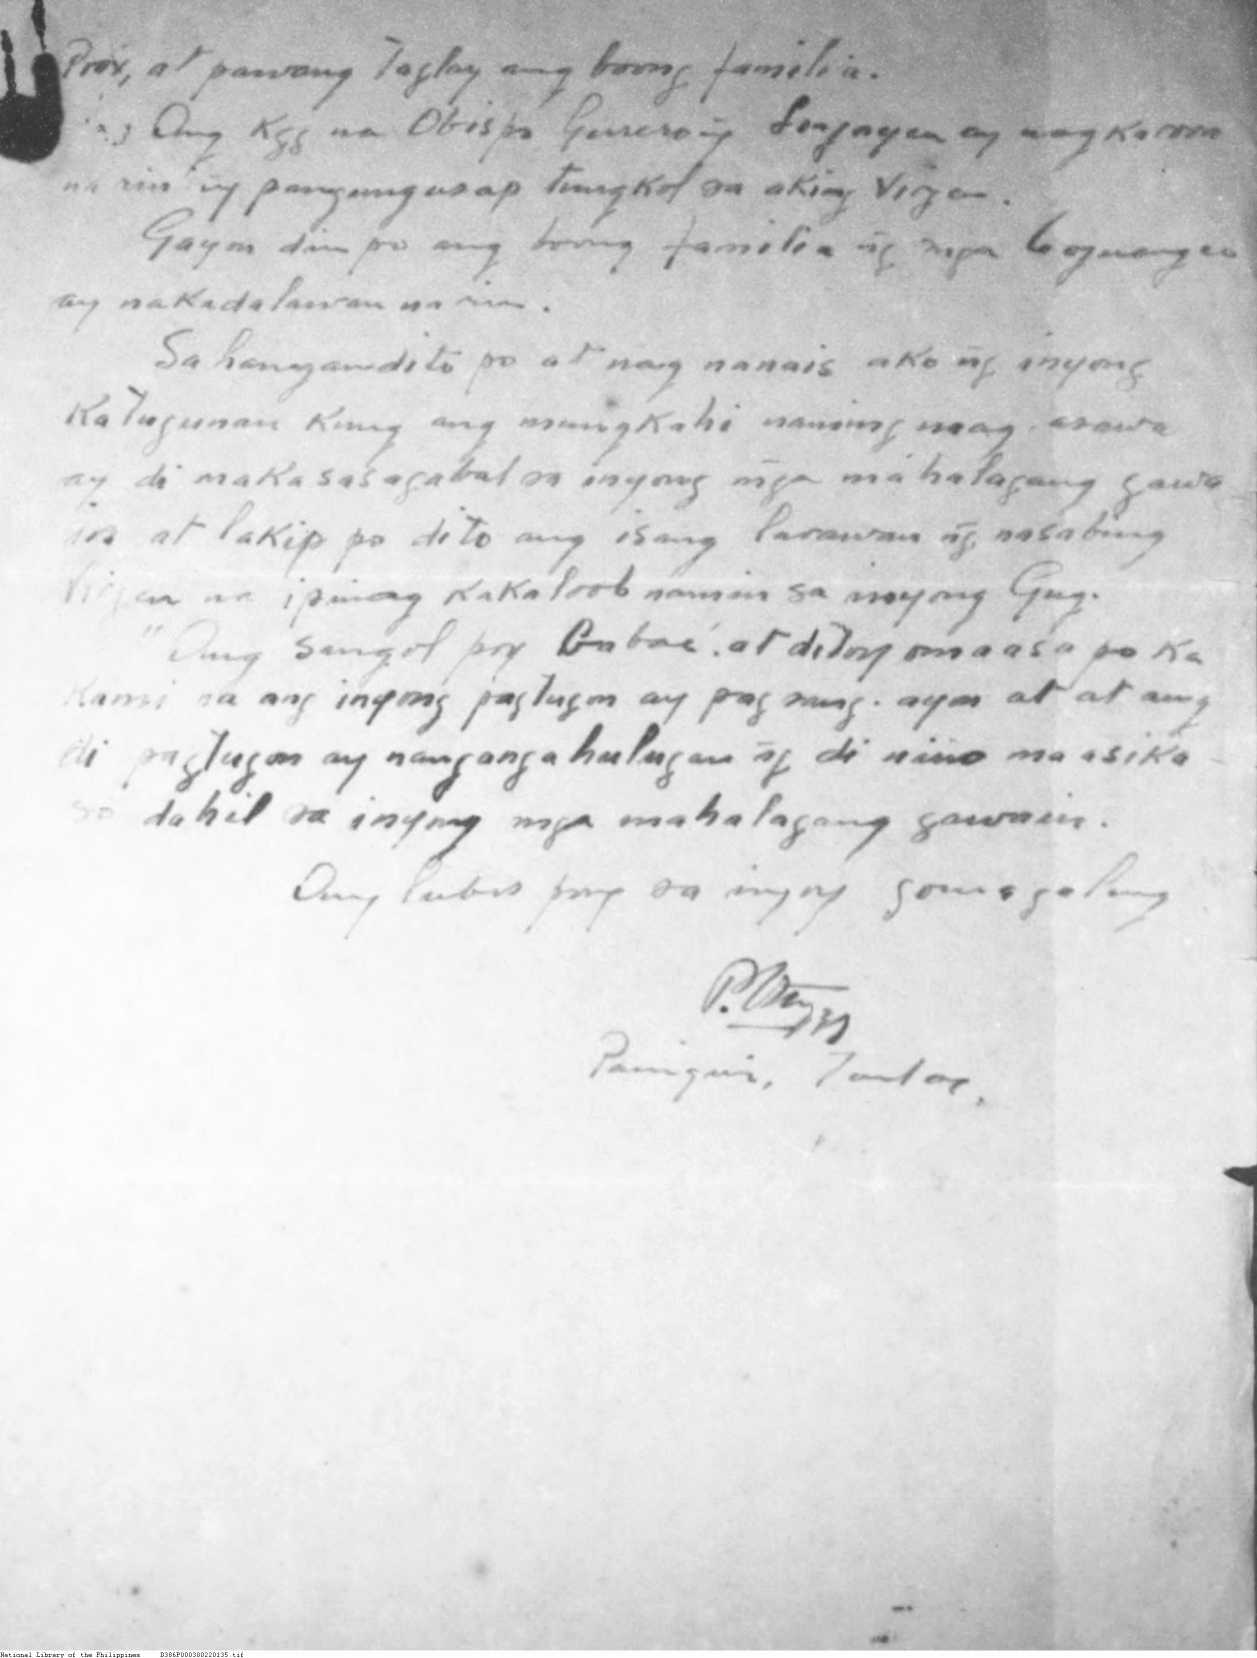 Prov, at pawang taglay ang boong familia.
Ang Kgg na Obispo Gurero ng Lingayen ay nagkaroon
na rin ng pangungusap tungkol sa aking Virgen.
Gayon din po ang boong familia ng mga Cojuangco
ay nakadalawan na rin.
Sa hangandito po at nag nanais ako ng inyong
Katugunan Kung ang mungkahi naming mag-asawa
ay di makasasagabal sa inyong mga mahalagang gawa-
in at lakip po dito ang isang larawan ng nasabing
Virgen na ipinag kakaloob namin sa inyong Gug.
"Ang Sangol poy at ditoy omaasa po Ka
Kami na ang inyong pagtugon ay pag sang-ayon at at ang
di pagtugon ay nangangahulugan ng di ninio maasika-
so dahil sa inyong mga mahalagang gawain.
Ang lubos poy sa inyoy gomagalang
P.
Paniqui, Tarlac.
National Library of the Philippines B386P000380220135.tif